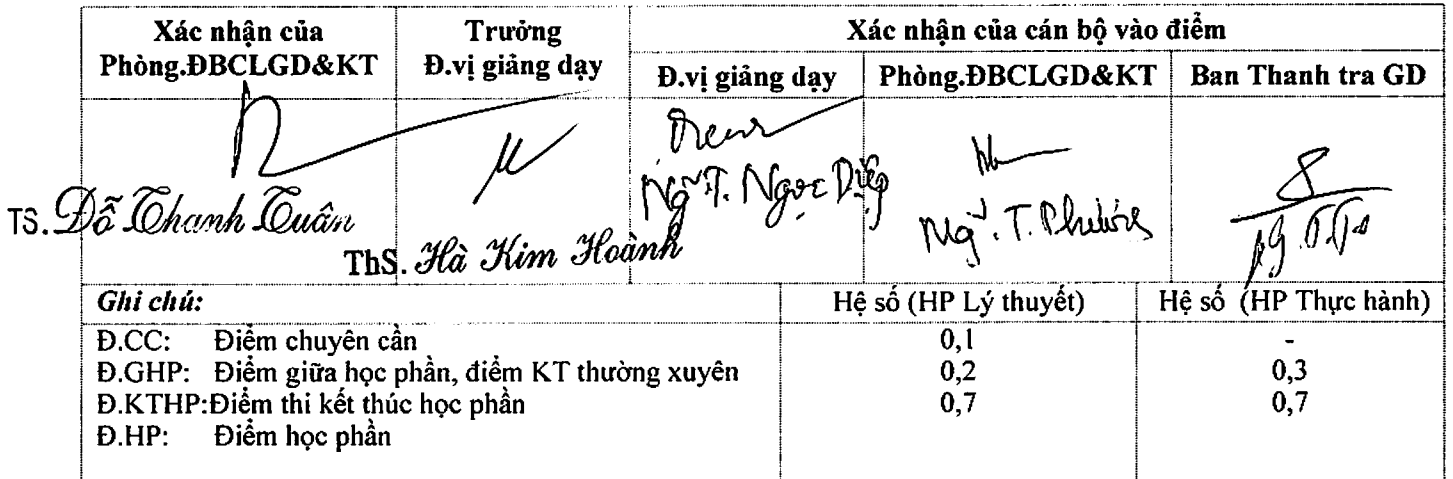 Xác nhận của Phòng.ĐBCLGD&KT
Trưởng Đ.vị giảng dạy
Xác nhận của cán bộ vào điểm
Đ.vị giảng dạy
Phòng.ĐBCLGD&KT
Ban Thanh tra GD
TS. Đỗ Thanh Tuân
ThS. Hà Kim Hoành
Ngũ T. Ngọc Diệp
Ng̃. T. Phương
Ghi chú:
Hệ số (HP Lý thuyết)
Hệ số (HP Thực hành)
Đ.CC: Điểm chuyên cần 0,1 -
Đ.GHP: Điểm giữa học phần, điểm KT thường xuyên 0,2 0,3
Đ.KTHP:Điểm thi kết thúc học phần 0,7 0,7
Đ.HP: Điểm học phần